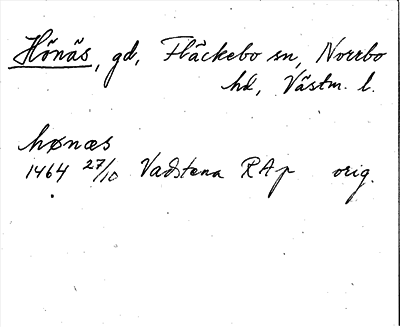 Hönäs, gd, Fläckebo sn, Norrbo
hd, Västm. l.
hønæs
1464 27/10 Vadstena RAp orig.